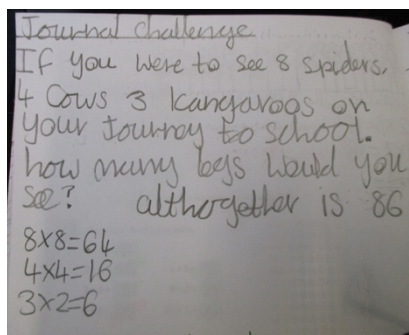 Journal Challenge
If you were to see 8 spiders,
4 Cows 3 kangaroos on
your Journey to school.
how many legs would you
see? althogether is 86
8x8=64
4x4=16
3x2=6